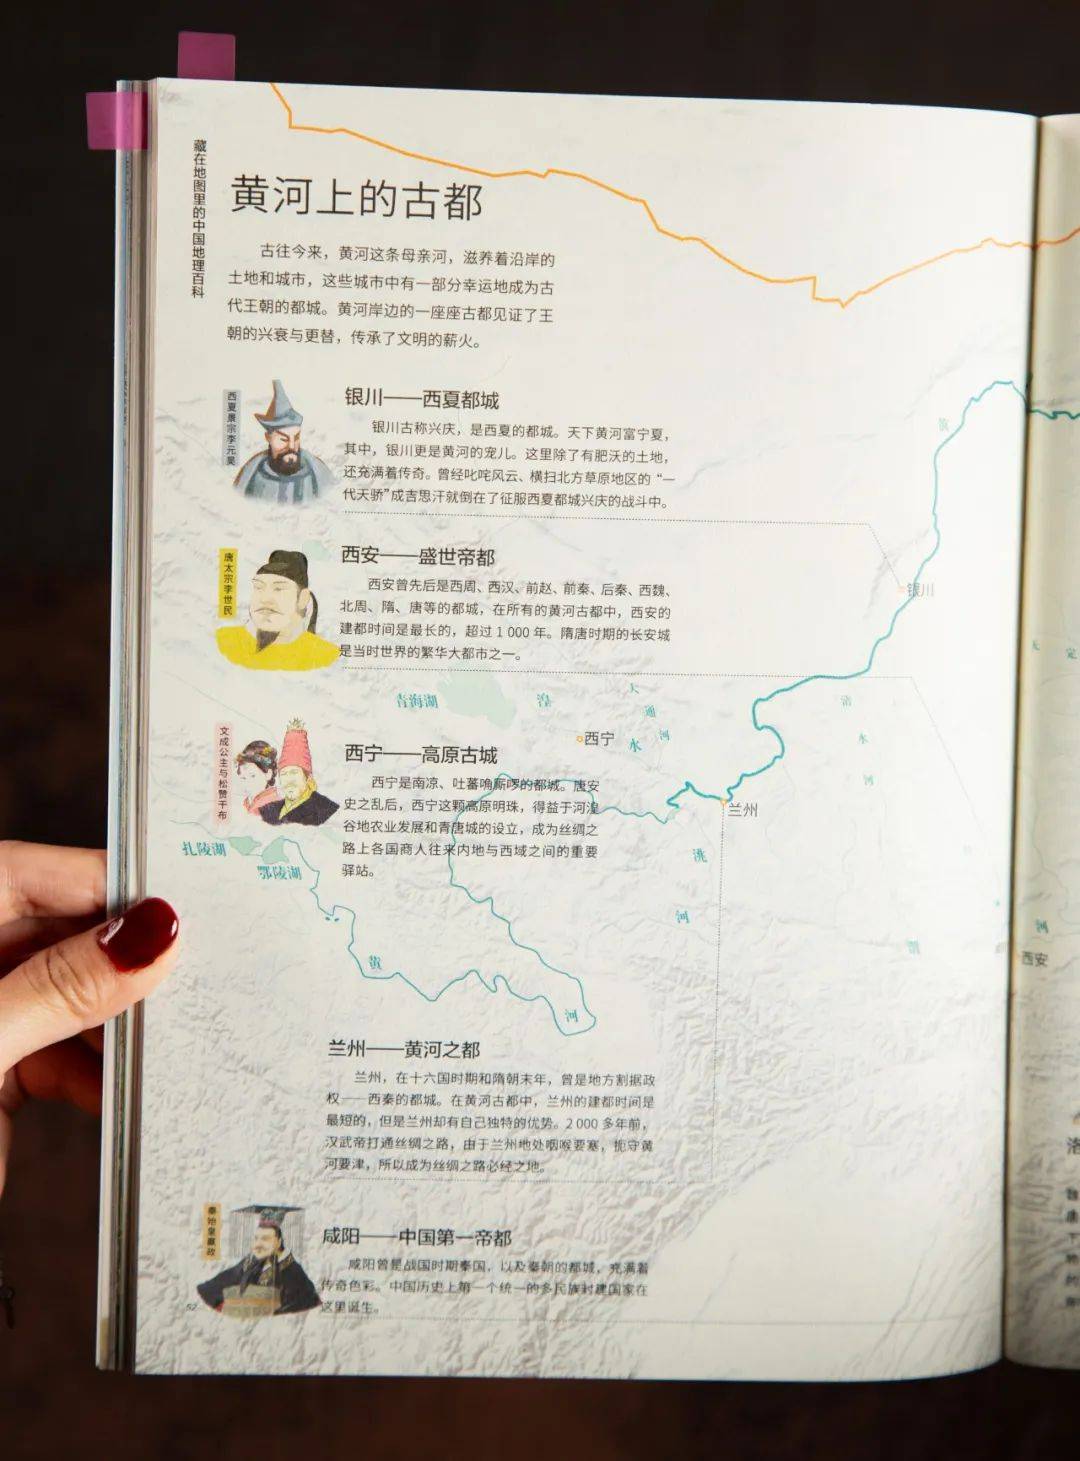 藏在地图里的中国地理百科
黄河上的古都
古往今来，黄河这条母亲河，滋养着沿岸的
土地和城市，这些城市中有一部分幸运地成为古
代王朝的都城。黄河岸边的一座座古都见证了王
朝的兴衰与更替，传承了文明的薪火。
西夏景宗李元昊
银川——西夏都城
银川古称兴庆，是西夏的都城。天下黄河富宁夏，
其中，银川更是黄河的宠儿。这里除了有肥沃的土地，
还充满着传奇。曾经叱咤风云、横扫北方草原地区的“一
代天骄”成吉思汗就倒在了征服西夏都城兴庆的战斗中。
唐太宗李世民
西安——盛世帝都
西安曾先后是西周、西汉、前赵、前秦、后秦、西魏、
北周、隋、唐等的都城，在所有的黄河古都中，西安的
建都时间是最长的，超过 1 000 年。隋唐时期的长安城
是当时世界的繁华大都市之一。
文成公主与松赞干布
西宁——高原古城
西宁是南凉、吐蕃唃厮啰的都城。唐安
史之乱后，西宁这颗高原明珠，得益于河湟
谷地农业发展和青唐城的设立，成为丝绸之
路上各国商人往来内地与西域之间的重要
驿站。
兰州——黄河之都
兰州，在十六国时期和隋朝末年，曾是地方割据政
权——西秦的都城。在黄河古都中，兰州的建都时间是
最短的，但是兰州却有自己独特的优势。2 000 多年前，
汉武帝打通丝绸之路，由于兰州地处咽喉要塞，扼守黄
河要津，所以成为丝绸之路必经之地。
秦始皇嬴政
咸阳——中国第一帝都
咸阳曾是战国时期秦国，以及秦朝的都城，充满着
传奇色彩。中国历史上第一个统一的多民族封建国家在
这里诞生。
52
黄
银川
青海湖
湟
水
大通河
西宁
清水河
兰州
扎陵湖
鄂陵湖
洮河
黄河
渭
河
西安
大
定
洛